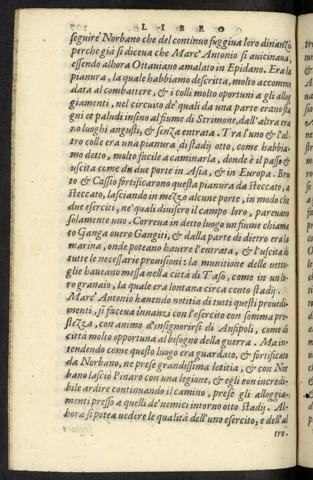 LIBRO
seguire Norbano che del continuo fuggiua loro dinanzi,
perche già si diceua che Marc'Antonio si auicinaua,
essendo alhora Ottauiano amalato in Epidano. Era la
pianura, la quale habbiamo descritta, molto accommo
data al combattere, & i colli molto oportuni a gli allog
giamenti, nel circuito de' quali da una parte erano sta
gni et paludi insino al fiume di Strimone, dall'altra era
no luoghi angusti, & senza entrata. Tra l'uno & l'al
tro colle era una pianura di stadij otto, come habbia-
mo detto, molto facile a caminarla, donde è il passo &
uscita come d'un due porte in Asia, & in Europa. Bru
to & Cassio fortificarono questa pianura da steccato, a
steccato, lasciando in mezzo alcune porte, in modo che
due eserciti, ne' quali diuisero il campo loro, pareuano
solamente uno. Correua in detto luogo un fiume chiama
to Ganga ouero Gangiti, & dalla parte di dietro era la
marina, onde poteano hauere l'entrata, & l'uscita di
tutte le necessarie prouisioni: la munitione delle uetto-
uaglie haueano messa nella città di Taso, come in un lo
ro granaio, la quale era lontana circa cento stadij.
Marc' Antonio hauendo notitia di tutti questi prouedi
menti, si faceua innanzi con l'esercito con somma pre-
stezza, con animo d'insignorirsi di Ansipoli, come di
città molto opportuna al bisogno della guerra. Ma in-
tendendo come questo luogo era guardato, & fortificato
da Norbano, ne prese grandissima letitia, & con Nor
bano lasciò Pinaro con una legione, & egli con incredi-
bile ardire continuando il camino, prese gli alloggia-
menti presso a quelli de' nemici intorno otto stadij. Al-
hora si potea uedere le qualità dell'uno esercito, e dell'al
tro.